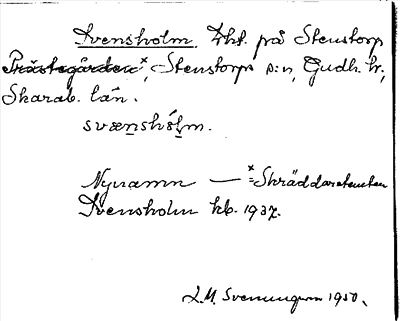 Svensholm. Lht. på Stenstorp
Prästegården×, Stenstorps s:n, Gudh. hd,
Skarab. län.
svænshólm.
Nynamn — ×=Skräddaretomten
Svensholm kb. 1937.
L.M. Svenungsson 1950.